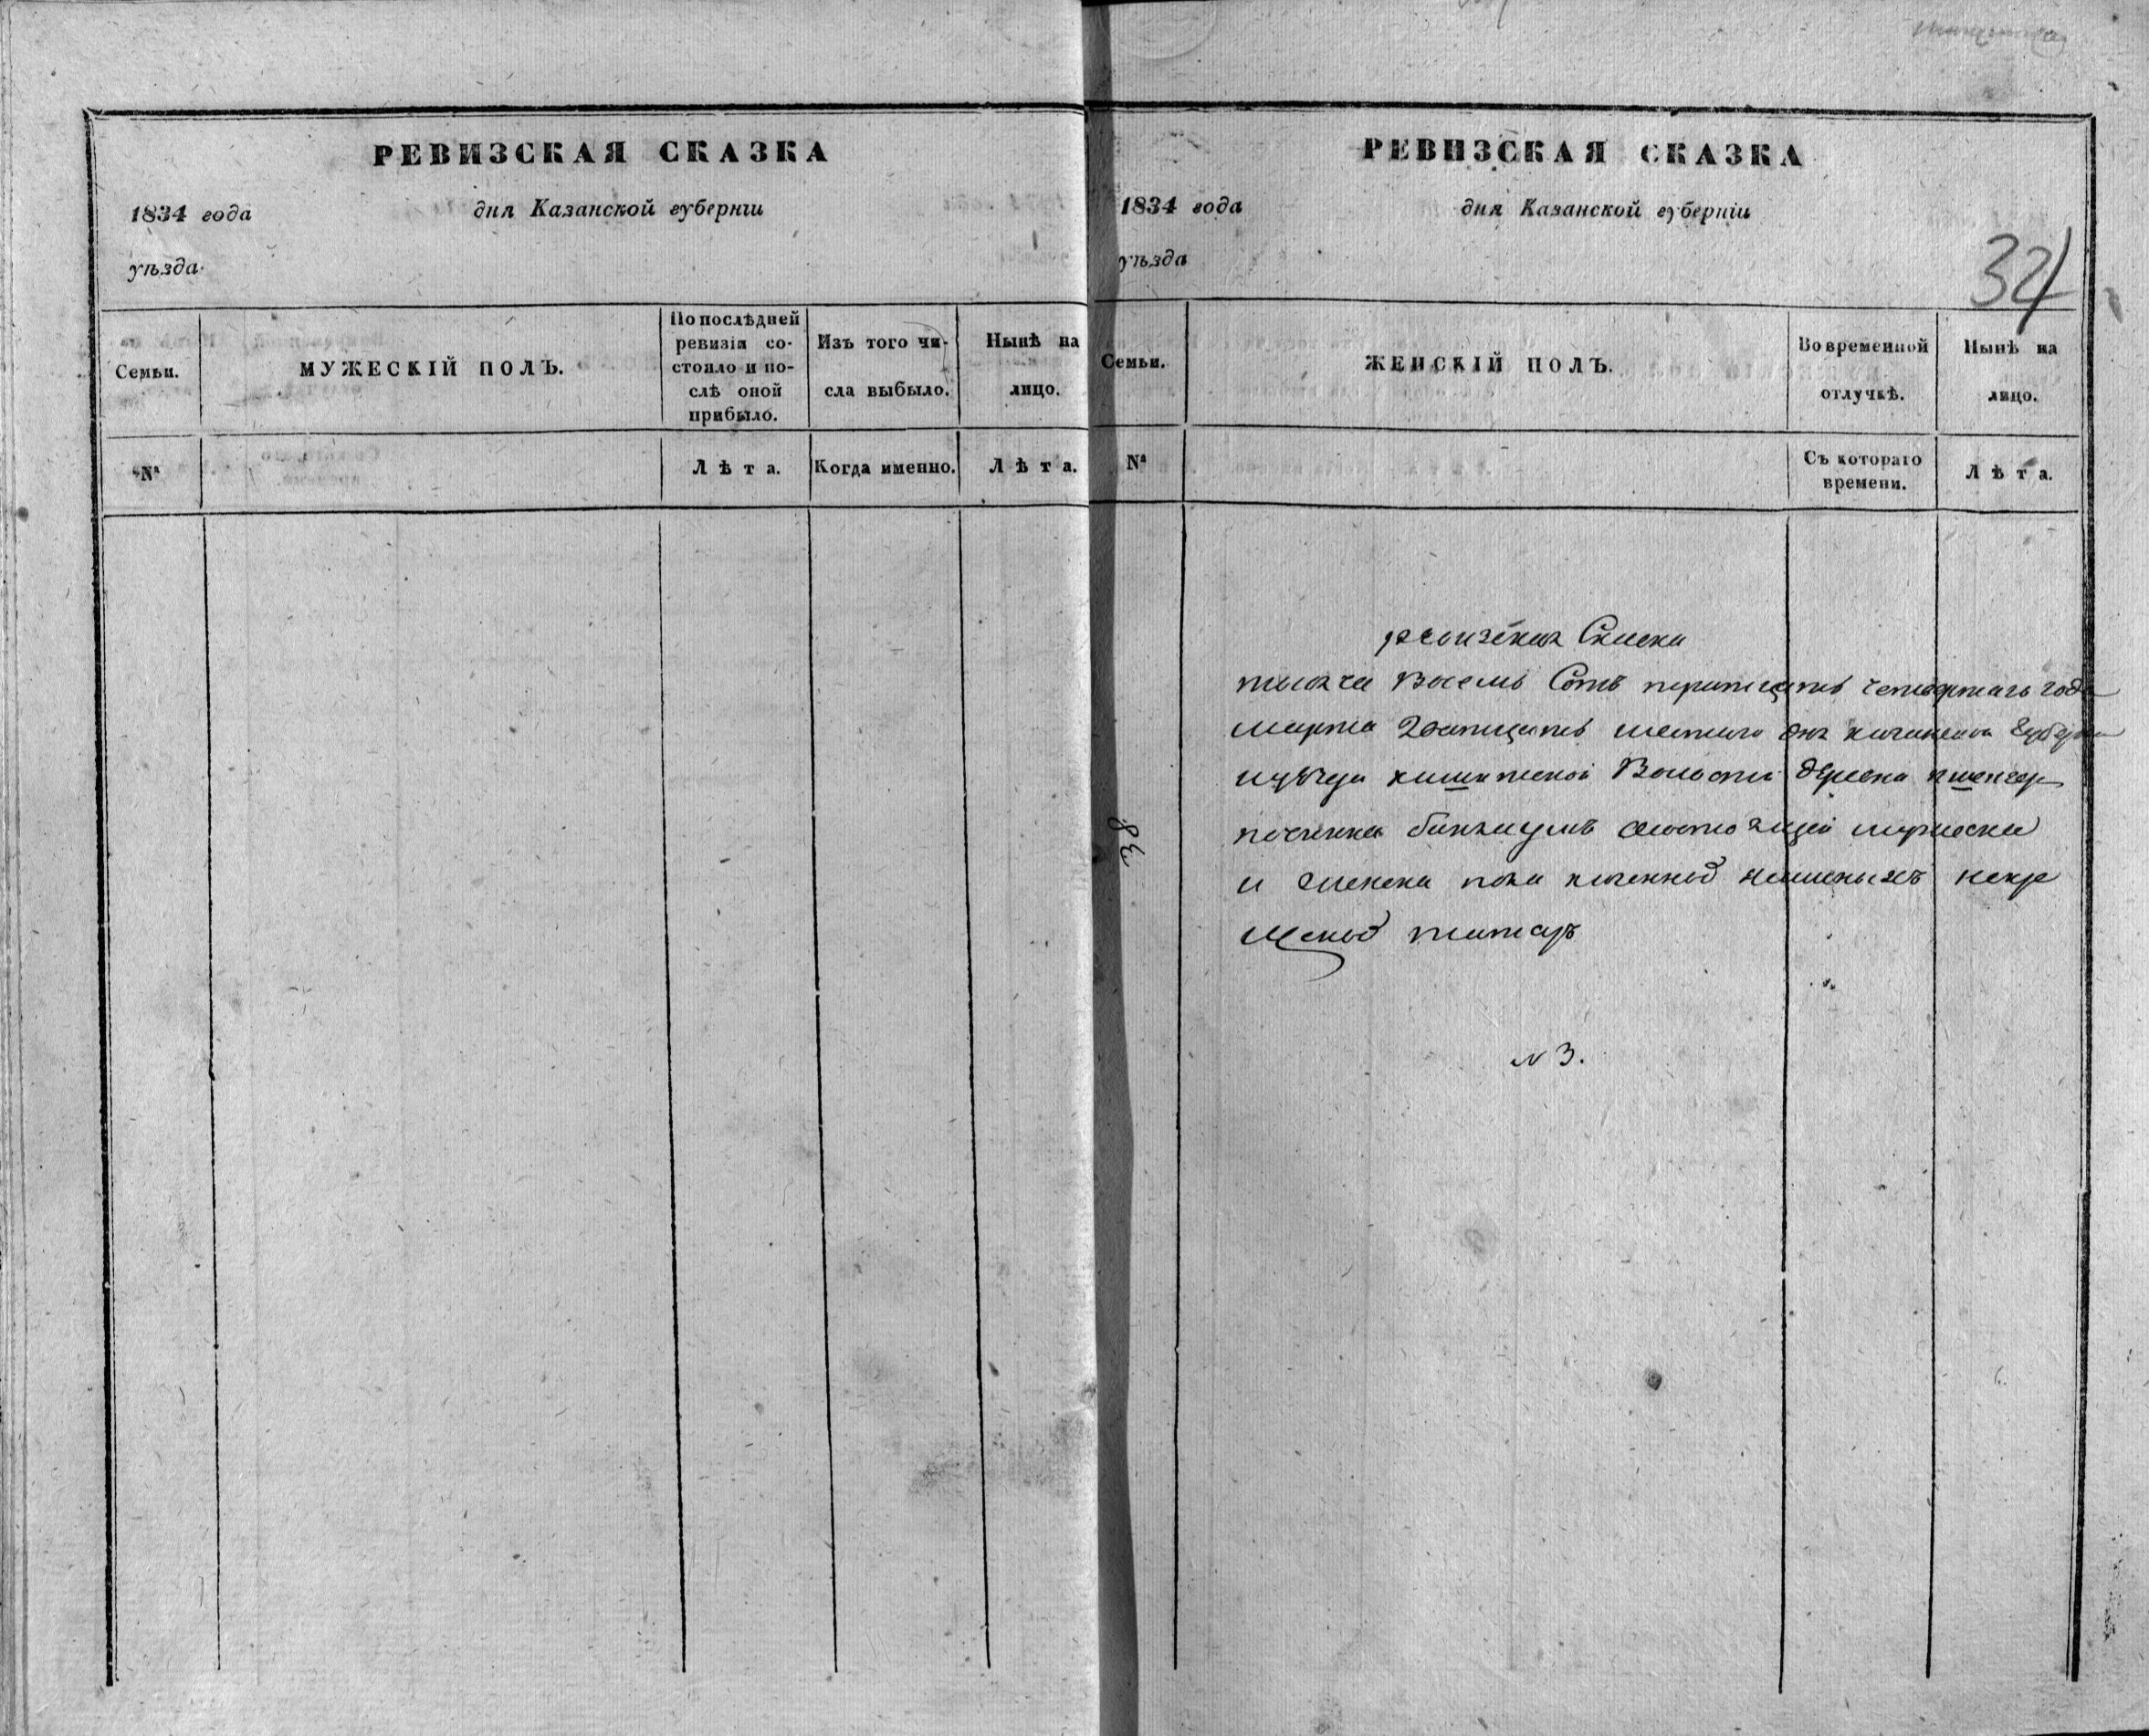 РЕВИЗСКАЯ СКАЗКА
1834 года дня Казанской губерніи
уѣзда
Семьи.
МУЖЕСКІЙ ПОЛЪ.
По послѣдней
ревизіи со-
стояло и по-
слѣ оной
прибыло.
Изъ того чи-
сла выбыло.
Нынѣ на
лицо.
№
Лѣта.
Когда именно.
Лѣта.
РЕВИЗСКАЯ СКАЗКА
1834 года дня Казанской губерніи
уѣзда
34
Семьи.
ЖЕНСКІЙ ПОЛЪ.
Во временной
отлучкѣ.
Нынѣ на
лицо.
№
Съ котораго
времени.
Лѣта.
ревизская Сказка
тысяча Восемь Сотъ тритцать четвертаго года
марта Дватцать шестаго дня казанской губернии
и уѣзда Волости деревни
починка состоящей мужеска
и женска пола некре
щеных татаръ
38
№ 3.